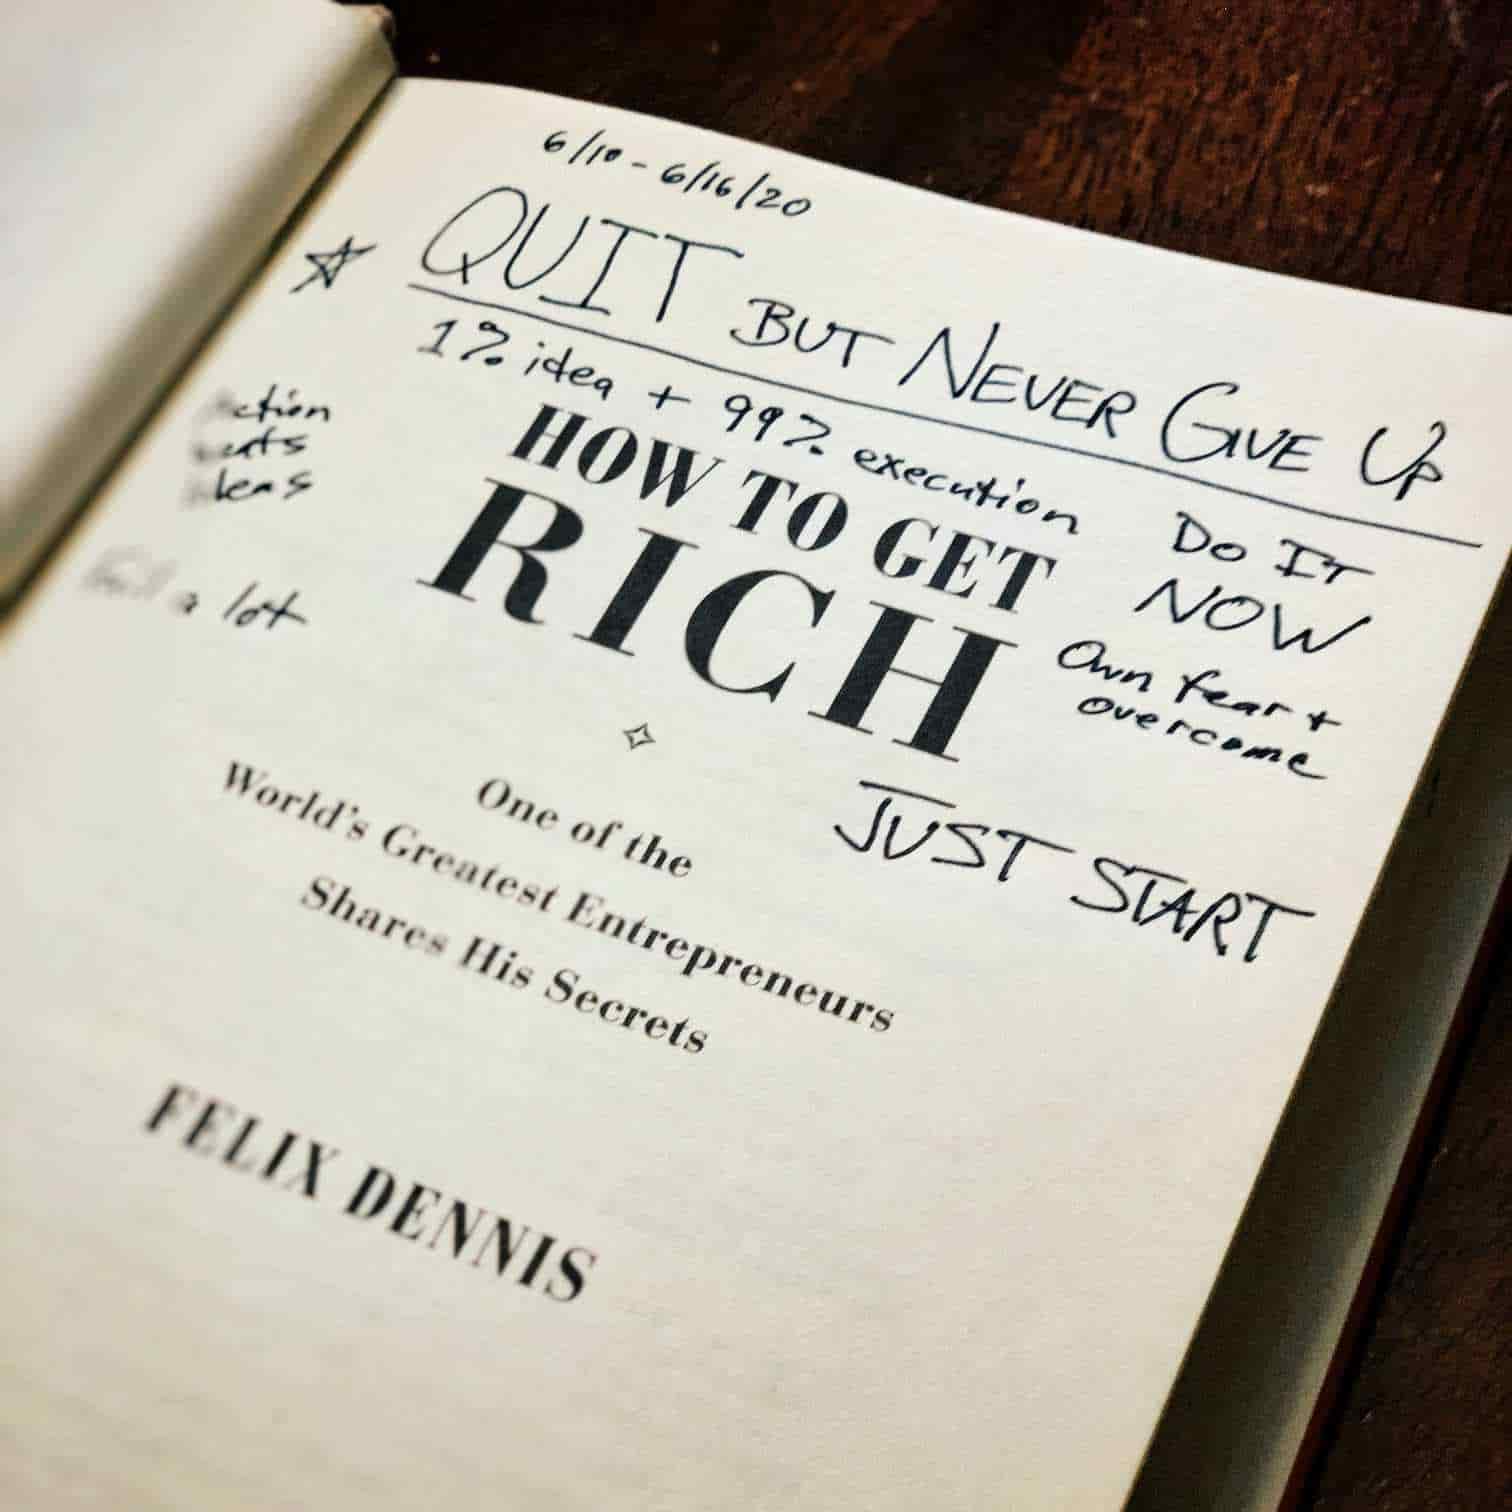 6/10-6/16/20
QUIT BUT NEVER GIVE UP
1% idea + 99% execution
HOW TO GET
RICH
Do IT
NOW
Own fear +
overcome
JUST START
a lot
One of the
World's Greatest Entrepreneurs
Shares His Secrets
FELIX DENNIS